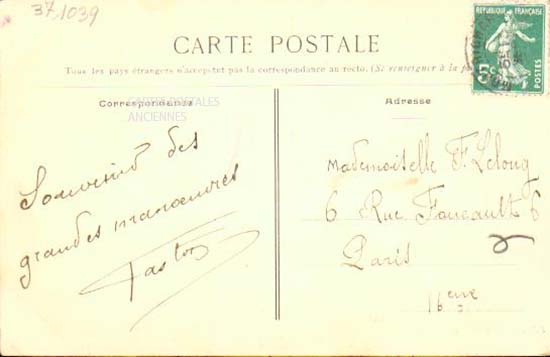 37.1039
CARTE POSTALE
Tous les pays étrangers n'acceptent pas la correspondance au recto. (Se renseigner à la
RÉPUBLIQUE FRANÇAISE
5c
POSTES
Correspondance
CARTE POSTALES
ANCIENNES
Adresse
Souvenir des
grandes manoeuvres
Mademoiselle F. Leloug
6 Rue Foucault 6
Paris
16eme